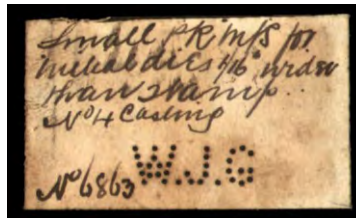 Small PR M/S for
Initial dies 1/16" wider
than stamp.
No 4 Casting
No 6863 W.J.G